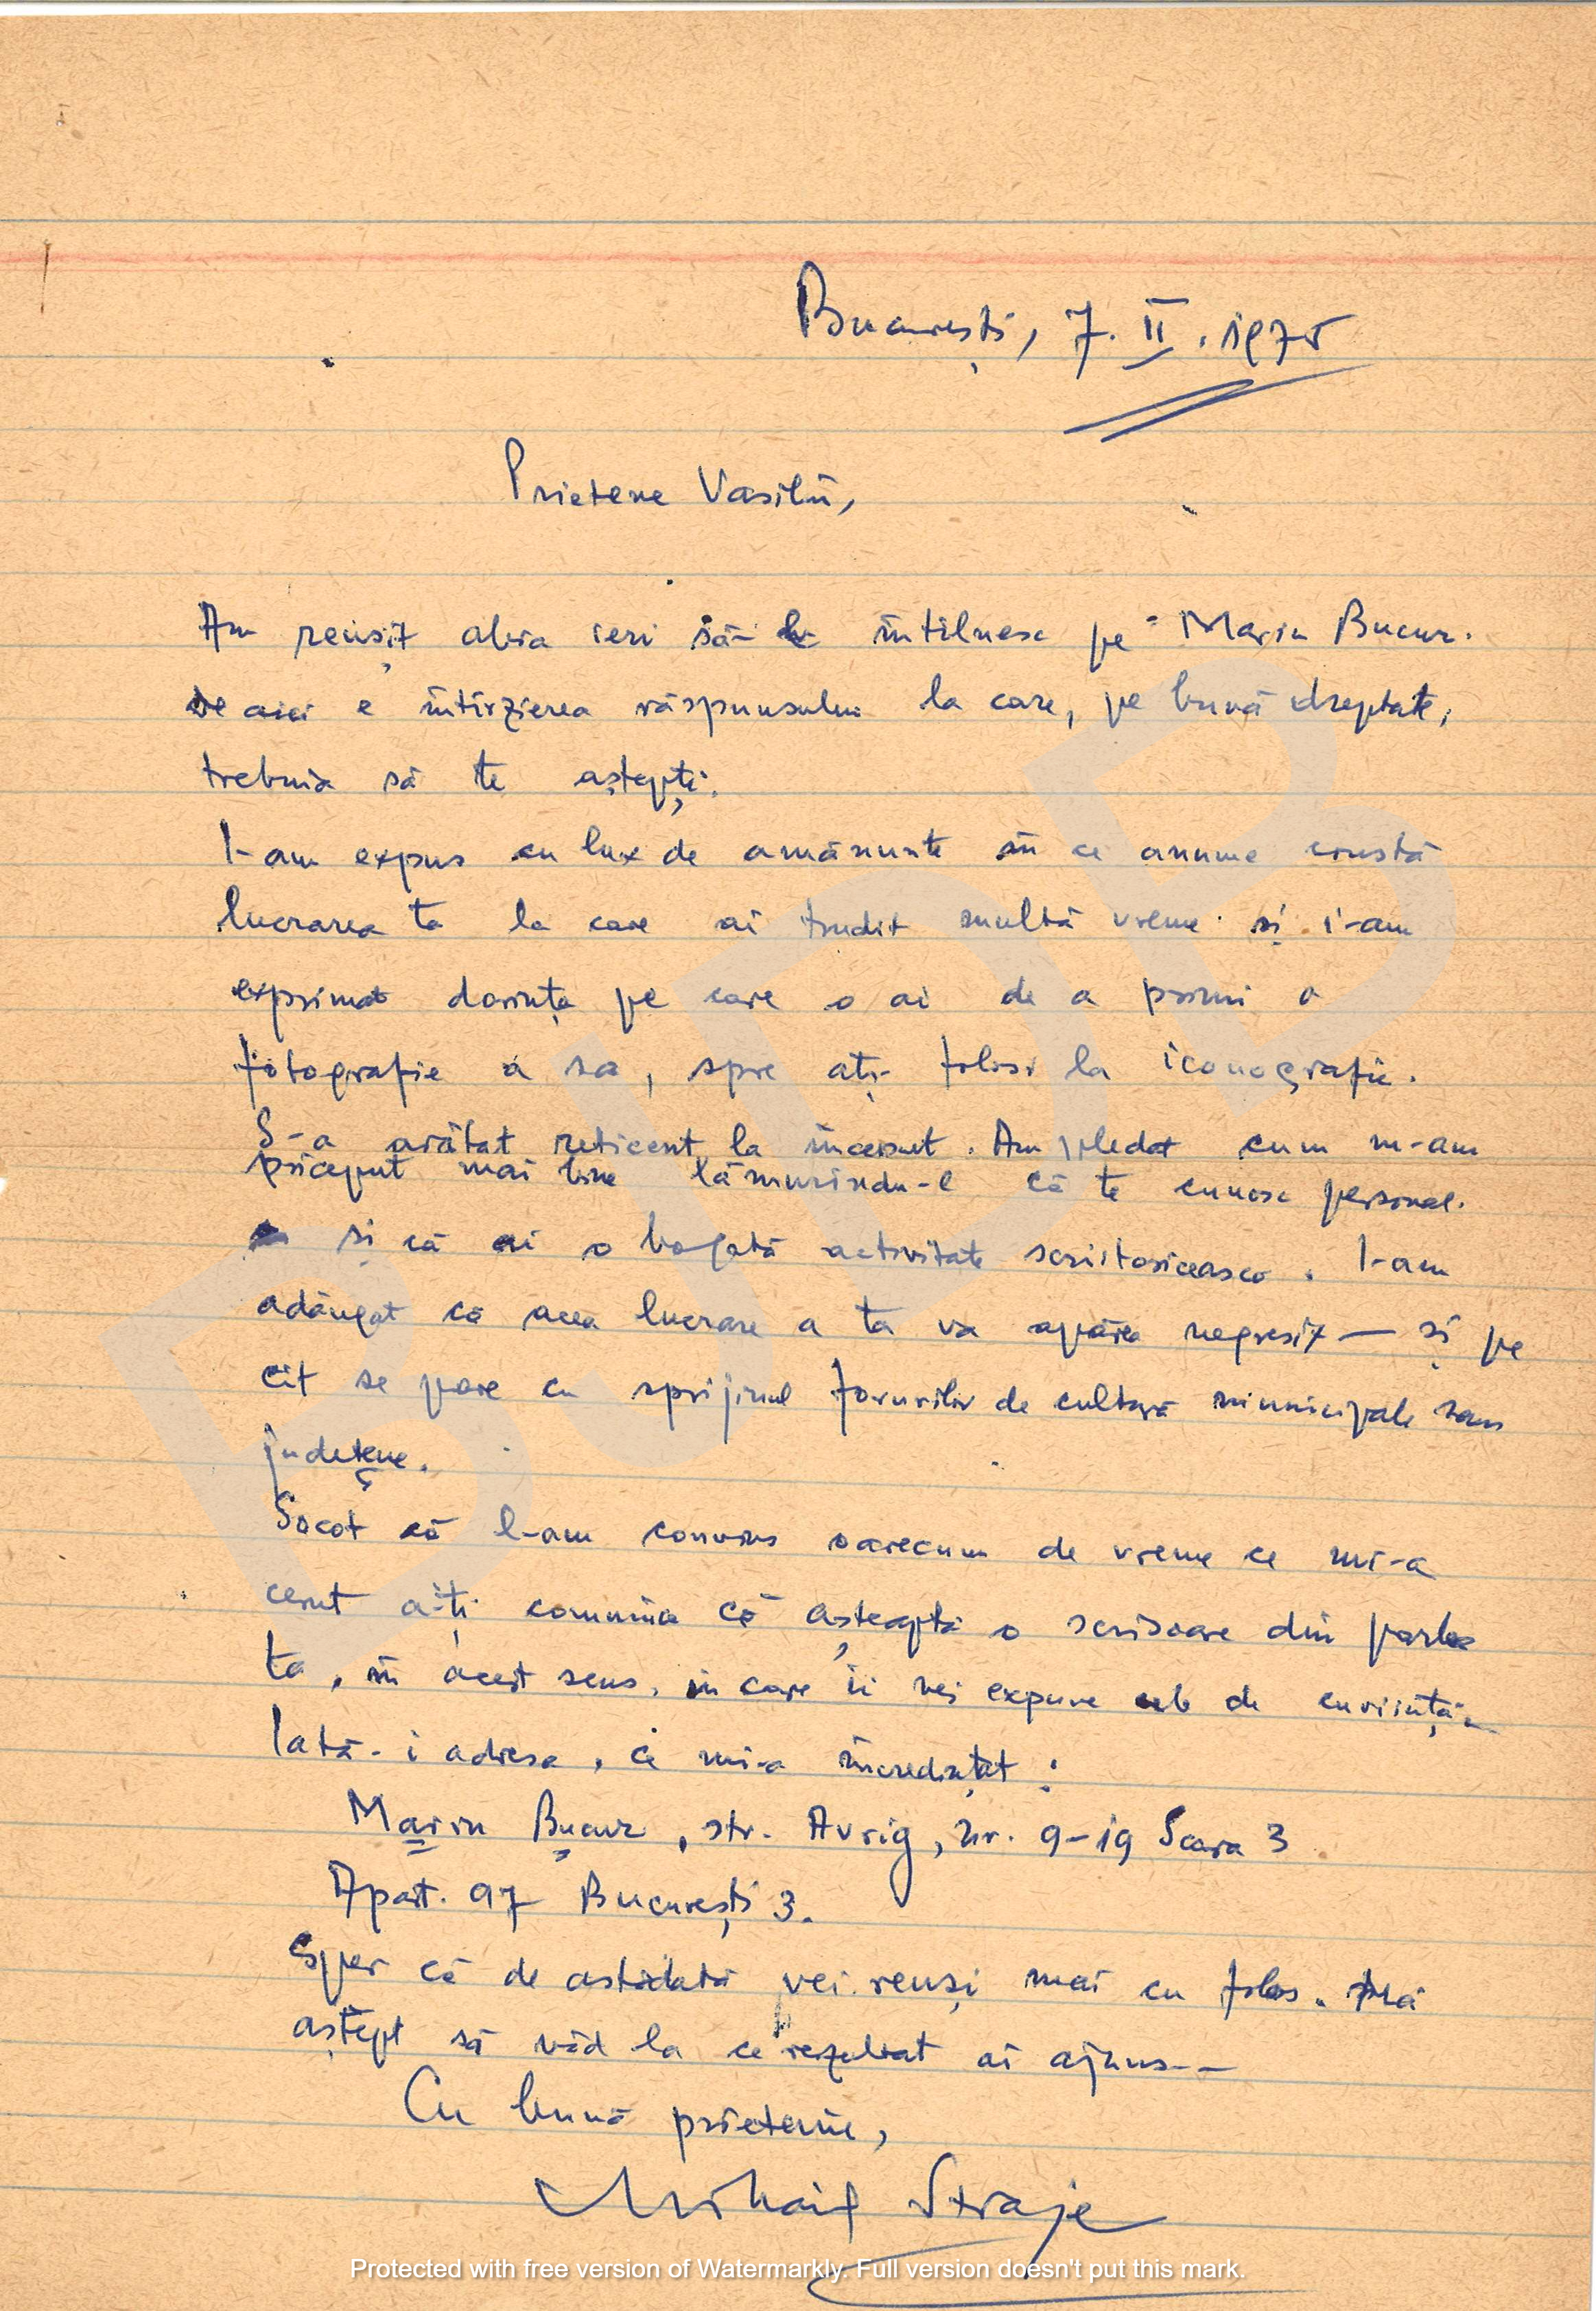 București, 7. II. 1975
Prietene Vasilii,
Am reușit abia ieri să-l întilnesc pe Marin Bucur.
De aici e intirzierea răspunsului la care, pe bună dreptate,
trebuia să te aștepți.
I-am expus cu lux de amănunte în ce anume constă
lucrarea ta la care ai trudit multă vreme și i-am
exprimat dorința pe care o ai de a primi o
fotografie a sa, spre ați folosi la iconografie.
S-a arătat reticent la început. Am pledat cum m-am
priceput mai bine lămurindu-l că te cunosc personal.
și că ai o bogată activitate scriitoricească. I-am
adăugat că acea lucrare a ta va apărea negreșit — și pe
cît se pare cu sprijinul forurilor de cultură municipale sau
județene.
Socot că l-am convins oarecum de vreme ce mi-a
cerut a-ți comunica că așteaptă o scrisoare din partea
ta, în acest sens, în care îi vei expune cele de cuviință.
Iată-i adresa, ce mi-a încredințat:
Marin Bucur, str. Avrig, nr. 9-19 Scara 3
Apart. 97 București 3.
Sper că de astădată vei reuși mai cu folos. Mă
aștept să văd la ce rezultat ai ajuns--
Cu bună prietenie,
Mihail Straje
BJDB
Protected with free version of Watermarkly. Full version doesn't put this mark.